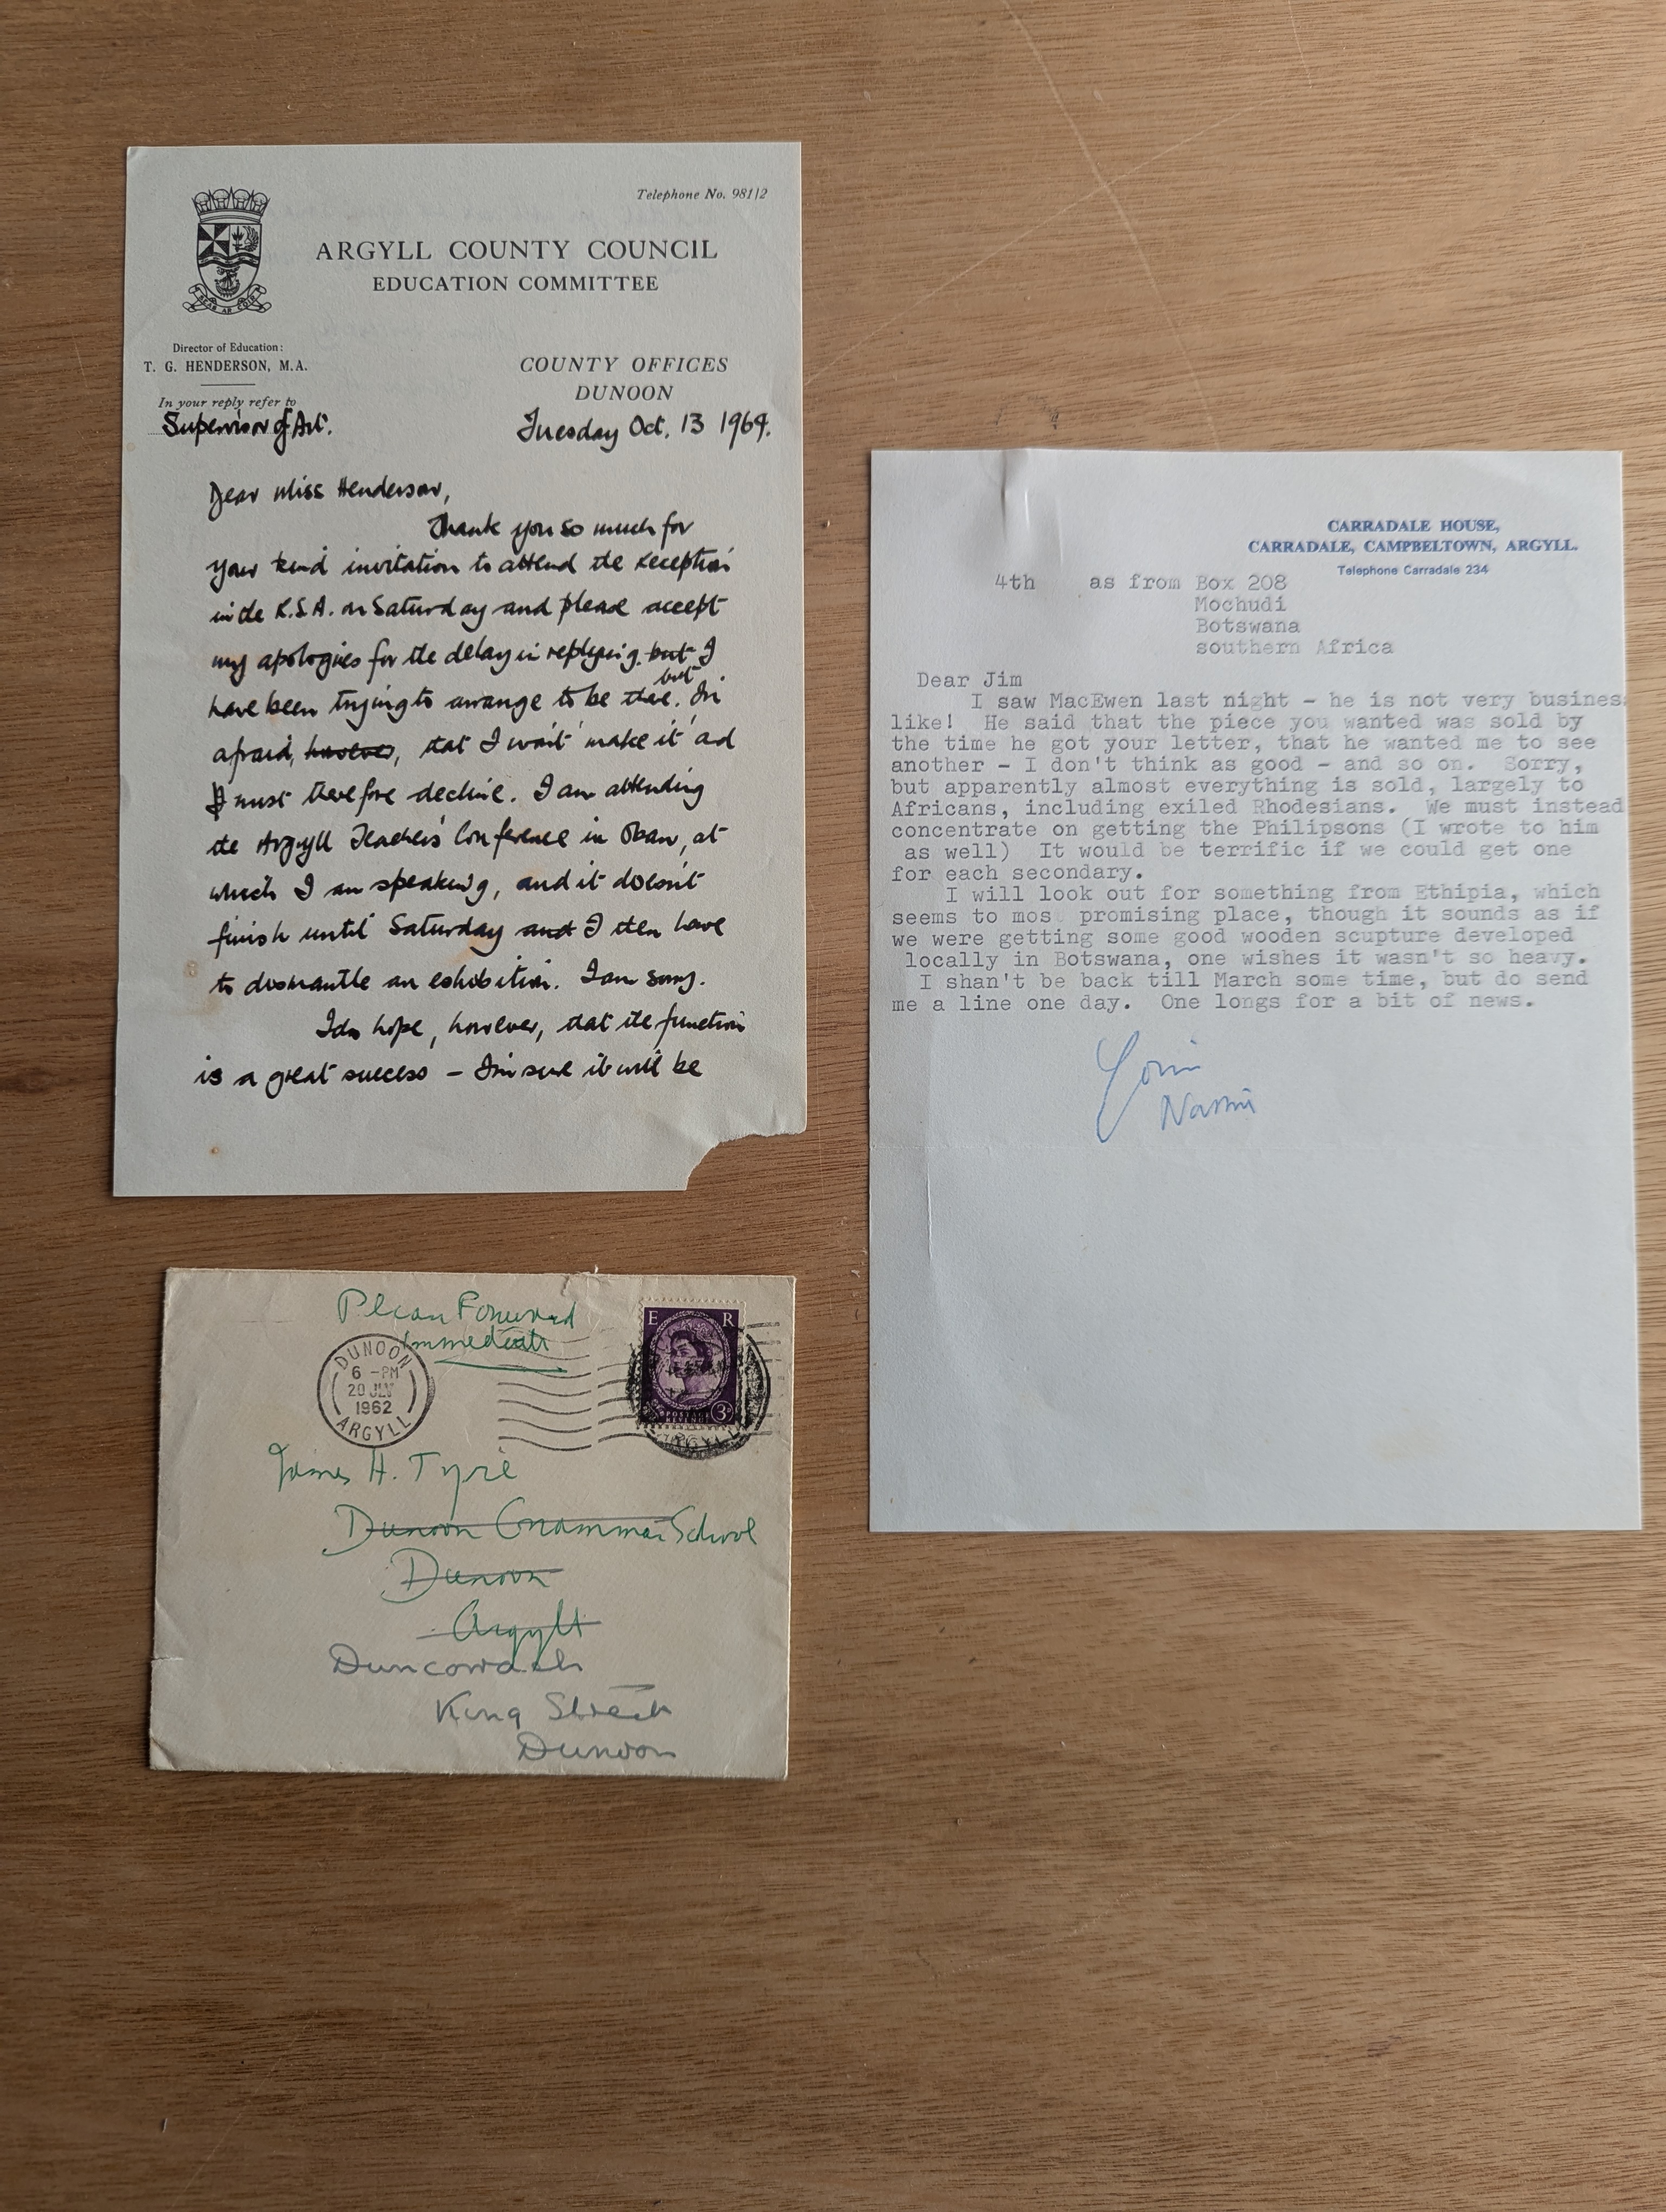 Telephone No. 981/2
ARGYLL COUNTY COUNCIL
EDUCATION COMMITTEE
Director of Education:
T. G. HENDERSON, M.A.
COUNTY OFFICES
DUNOON
In your reply refer to
Supervisor of Art.
Tuesday Oct. 13 1964.
Dear Miss Henderson,
Thank you so much for
your kind invitation to attend the reception
in the R.S.A. on Saturday and please accept
my apologies for the delay in replying. but I
but
have been trying to arrange to be there. I'm
afraid, however, that I won't make it ad
I must therefore decline. I am attending
the Argyll Teachers' Conference in Oban, at
which I am speaking, and it doesn't
finish until Saturday and I then have
to dismantle an exhibition. I am sorry.
I do hope, however, that the function
is a great success – I'm sure it will be
CARRADALE HOUSE,
CARRADALE, CAMPBELTOWN, ARGYLL.
Telephone Carradale 234
4th as from Box 208
Mochudi
Botswana
southern Africa
Dear Jim
I saw MacEwen last night - he is not very busines
like! He said that the piece you wanted was sold by
the time he got your letter, that he wanted me to see
another - I don't think as good - and so on. Sorry,
but apparently almost everything is sold, largely to
Africans, including exiled Rhodesians. We must instead
concentrate on getting the Philipsons (I wrote to him
as well) It would be terrific if we could get one
for each secondary.
I will look out for something from Ethipia, which
seems to mos promising place, though it sounds as if
we were getting some good wooden scupture developed
locally in Botswana, one wishes it wasn't so heavy.
I shan't be back till March some time, but do send
me a line one day. One longs for a bit of news.
Naomi
Please Forward
Immediately
DUNOON
6 - PM
20 JLY
1962
ARGYLL
E R
POSTAGE
REVENUE
3D
ARGYLL
James H. Tyre
Dunoon Grammar School
Dunoon
Argyll
King Street
Dunoon